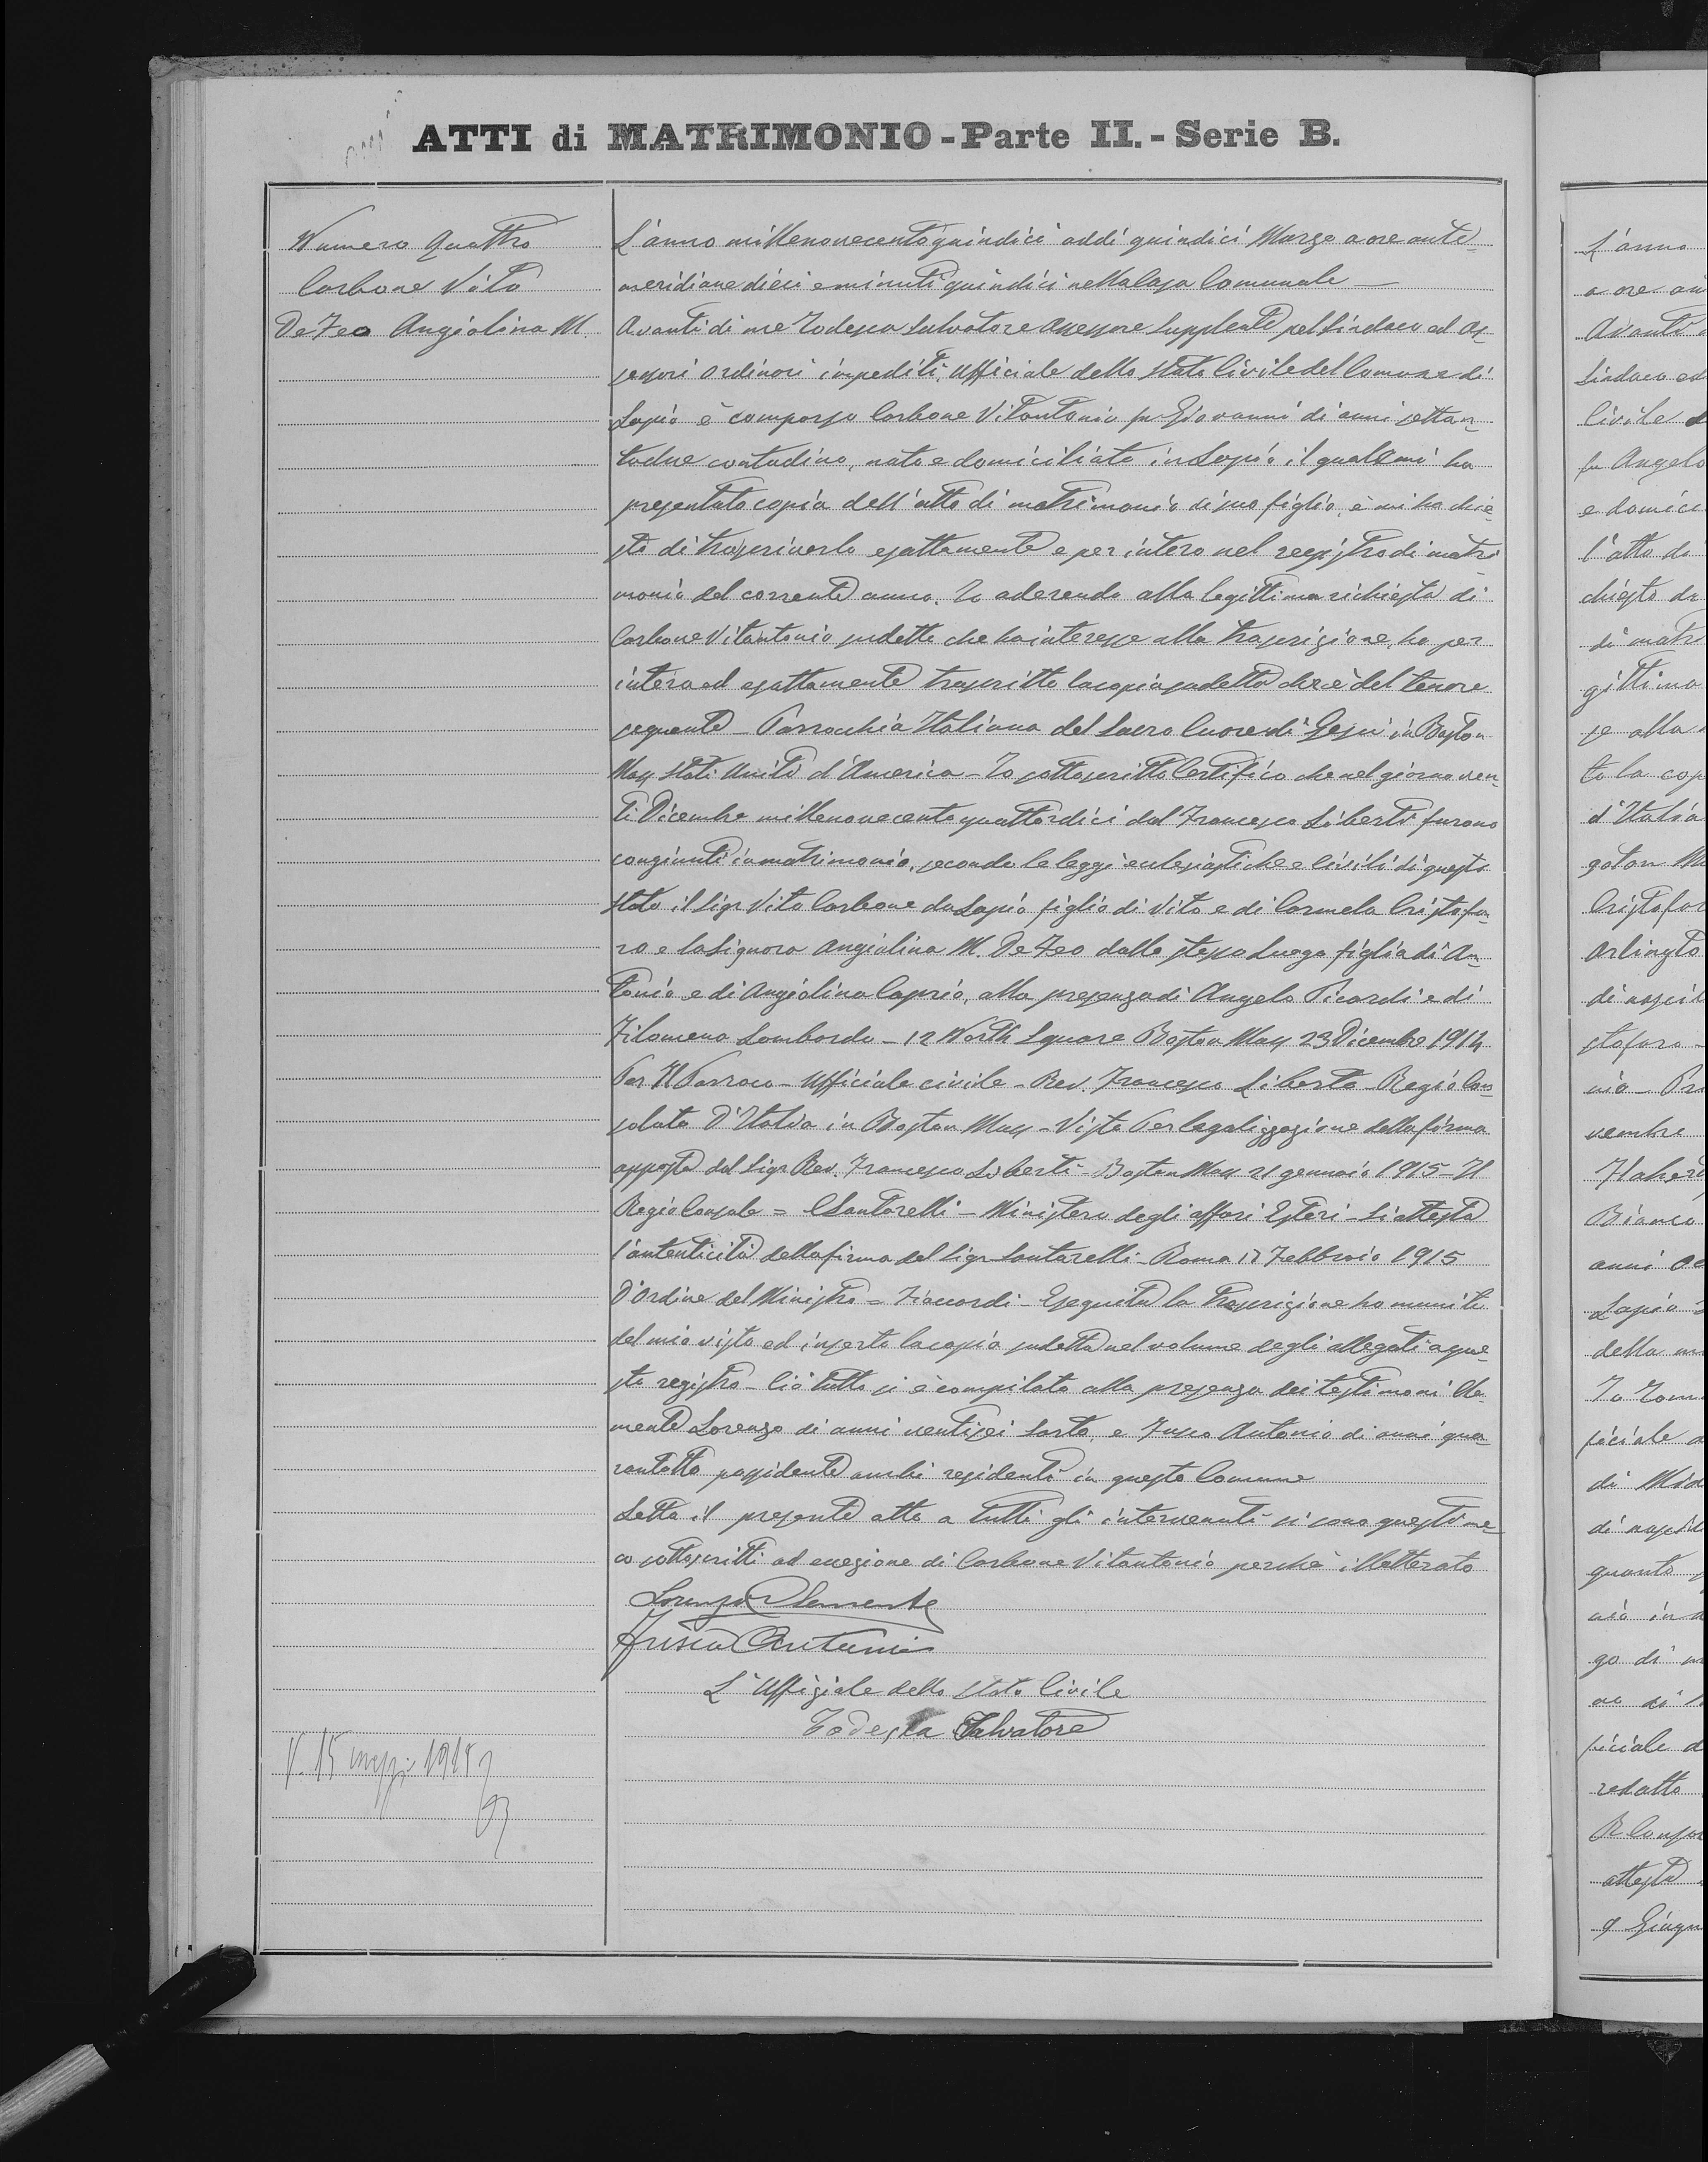 ATTI di MATRIMONIO - Parte II. - Serie B.
Numero Quattro
Carbone Vito
De Feo Angiolina M.
L'anno millenovecentoquindici addi quindici Marzo a ore ante-
meridiane dieci e minuti quindici nella Casa Comunale —
Avanti di me Todesca Salvatore Assessore Supplente pel Sindaco ed As-
sessori Ordinari impediti, Ufficiale dello Stato Civile del Comune di
Lapio è comparso Carbone Vitantonio fu Giovanni di anni settan-
tadue contadino, nato e domiciliato in Lapio il quale mi ha
presentato copia dell'atto di matrimonio di suo figlio, e mi ha chie-
sto di trascriverlo esattamente e per intero nel registro di matri
monio del corrente anno. Io aderendo alla legittima richiesta di
Carbone Vitantonio sudetto che ha interesse alla trascrizione, ho per
intero ed esattamente trascritto la copia sudetta che è del tenore
seguente - Parrocchia Italiana del Sacro Cuore di Gesù in Boston
Mass Stati Uniti d'America - Io sottoscritto Certifico che nel giorno ven-
ti Dicembre millenovecentoquattordici dal Francesco Liberti furono
congiunti in matrimonio, secondo le leggi ecclesiastiche e civili di questo
Stato il Sigr Vito Carbone da Lapio figlio di Vito e di Carmela Cristofa-
ro e la Signora Angiolina M. De Feo dallo stesso Luogo figlia di An-
tonio e di Angiolina Caprio, alla presenza di Angelo Picardi e di
Filomena Lombardo - 12 North Square Boston Mass 23 Dicembre 1914
Per Il Parroco - Ufficiale civile - Rev. Francesco Liberto - Regio Con-
solato D'Italia in Boston Mass - Visto Per legalizzazione della firma
apposta dal Sigr Rev. Francesco Liberti - Boston Mass 21 gennaio 1915 - Il
Regio Console = Santorelli - Ministero degli affari Esteri - Si attesta
l'autenticità della firma del Sigr Santarelli - Roma 17 Febbraio 1915
D'Ordine del Ministro = Fiaccordi - Eseguita la trascrizione ho munito
del mio visto ed inserto la copia sudetta nel volume degli allegati a que-
sto registro - Ciò tutto si è compilato alla presenza dei testimoni Cle-
mente Lorenzo di anni ventisei Sarto, e Fusco Antonio di anni qua-
rantotto possidente ambi residenti in questo Comune
Letto il presente atto a tutti gli intervenuti si sono questi me-
co sottoscritti ad eccezione di Carbone Vitantonio perchè illetterato
Lorenzo Clemente
Fusco Antonio
L'Uffiziale dello Stato Civile
Todesca Salvatore
V. 15 1915
L'anno
a ore an
Avanti
Sindaco ed
Civile
fu Angelo
e domici
l'atto di
chiesto di
di matr
gittima
se alla
to la cop
d'Italia
Cristofar
Arlingto
stofaro -
vembre
Bianco
anni
Lapio
della
ficiale
di
quanto
go di
ficiale d
redatto
R Conso
attesta
9 Giugn